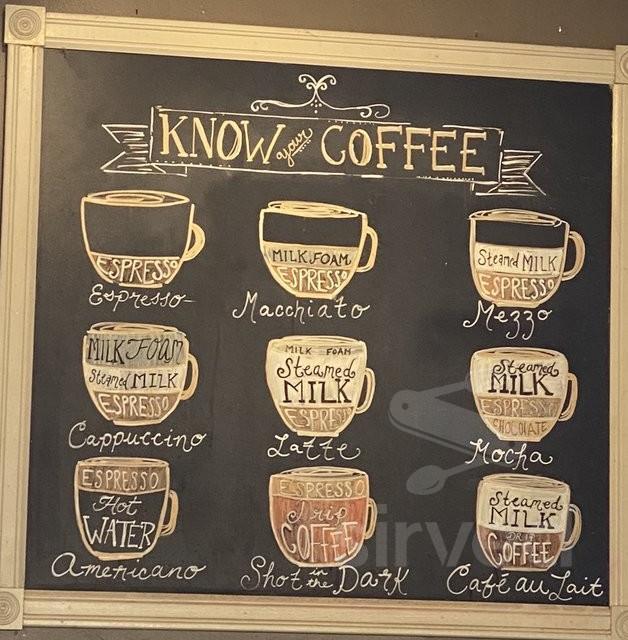 KNOW your COFFEE
ESPRESSO
Espresso
MILK FOAM
ESPRESSO
Macchiato
Steamed MILK
ESPRESSO
Mezzo
MILK FOAM
Steamed MILK
ESPRESSO
Cappuccino
MILK FOAM
Steamed
MILK
ESPRESSO
Latte
Steamed
MILK
ESPRESSO
CHOCOLATE
Mocha
ESPRESSO
Hot
WATER
Americano
ESPRESSO
drip
COFFEE
Shot in the Dark
Steamed
MILK
DRIP
COFFEE
Café au Lait